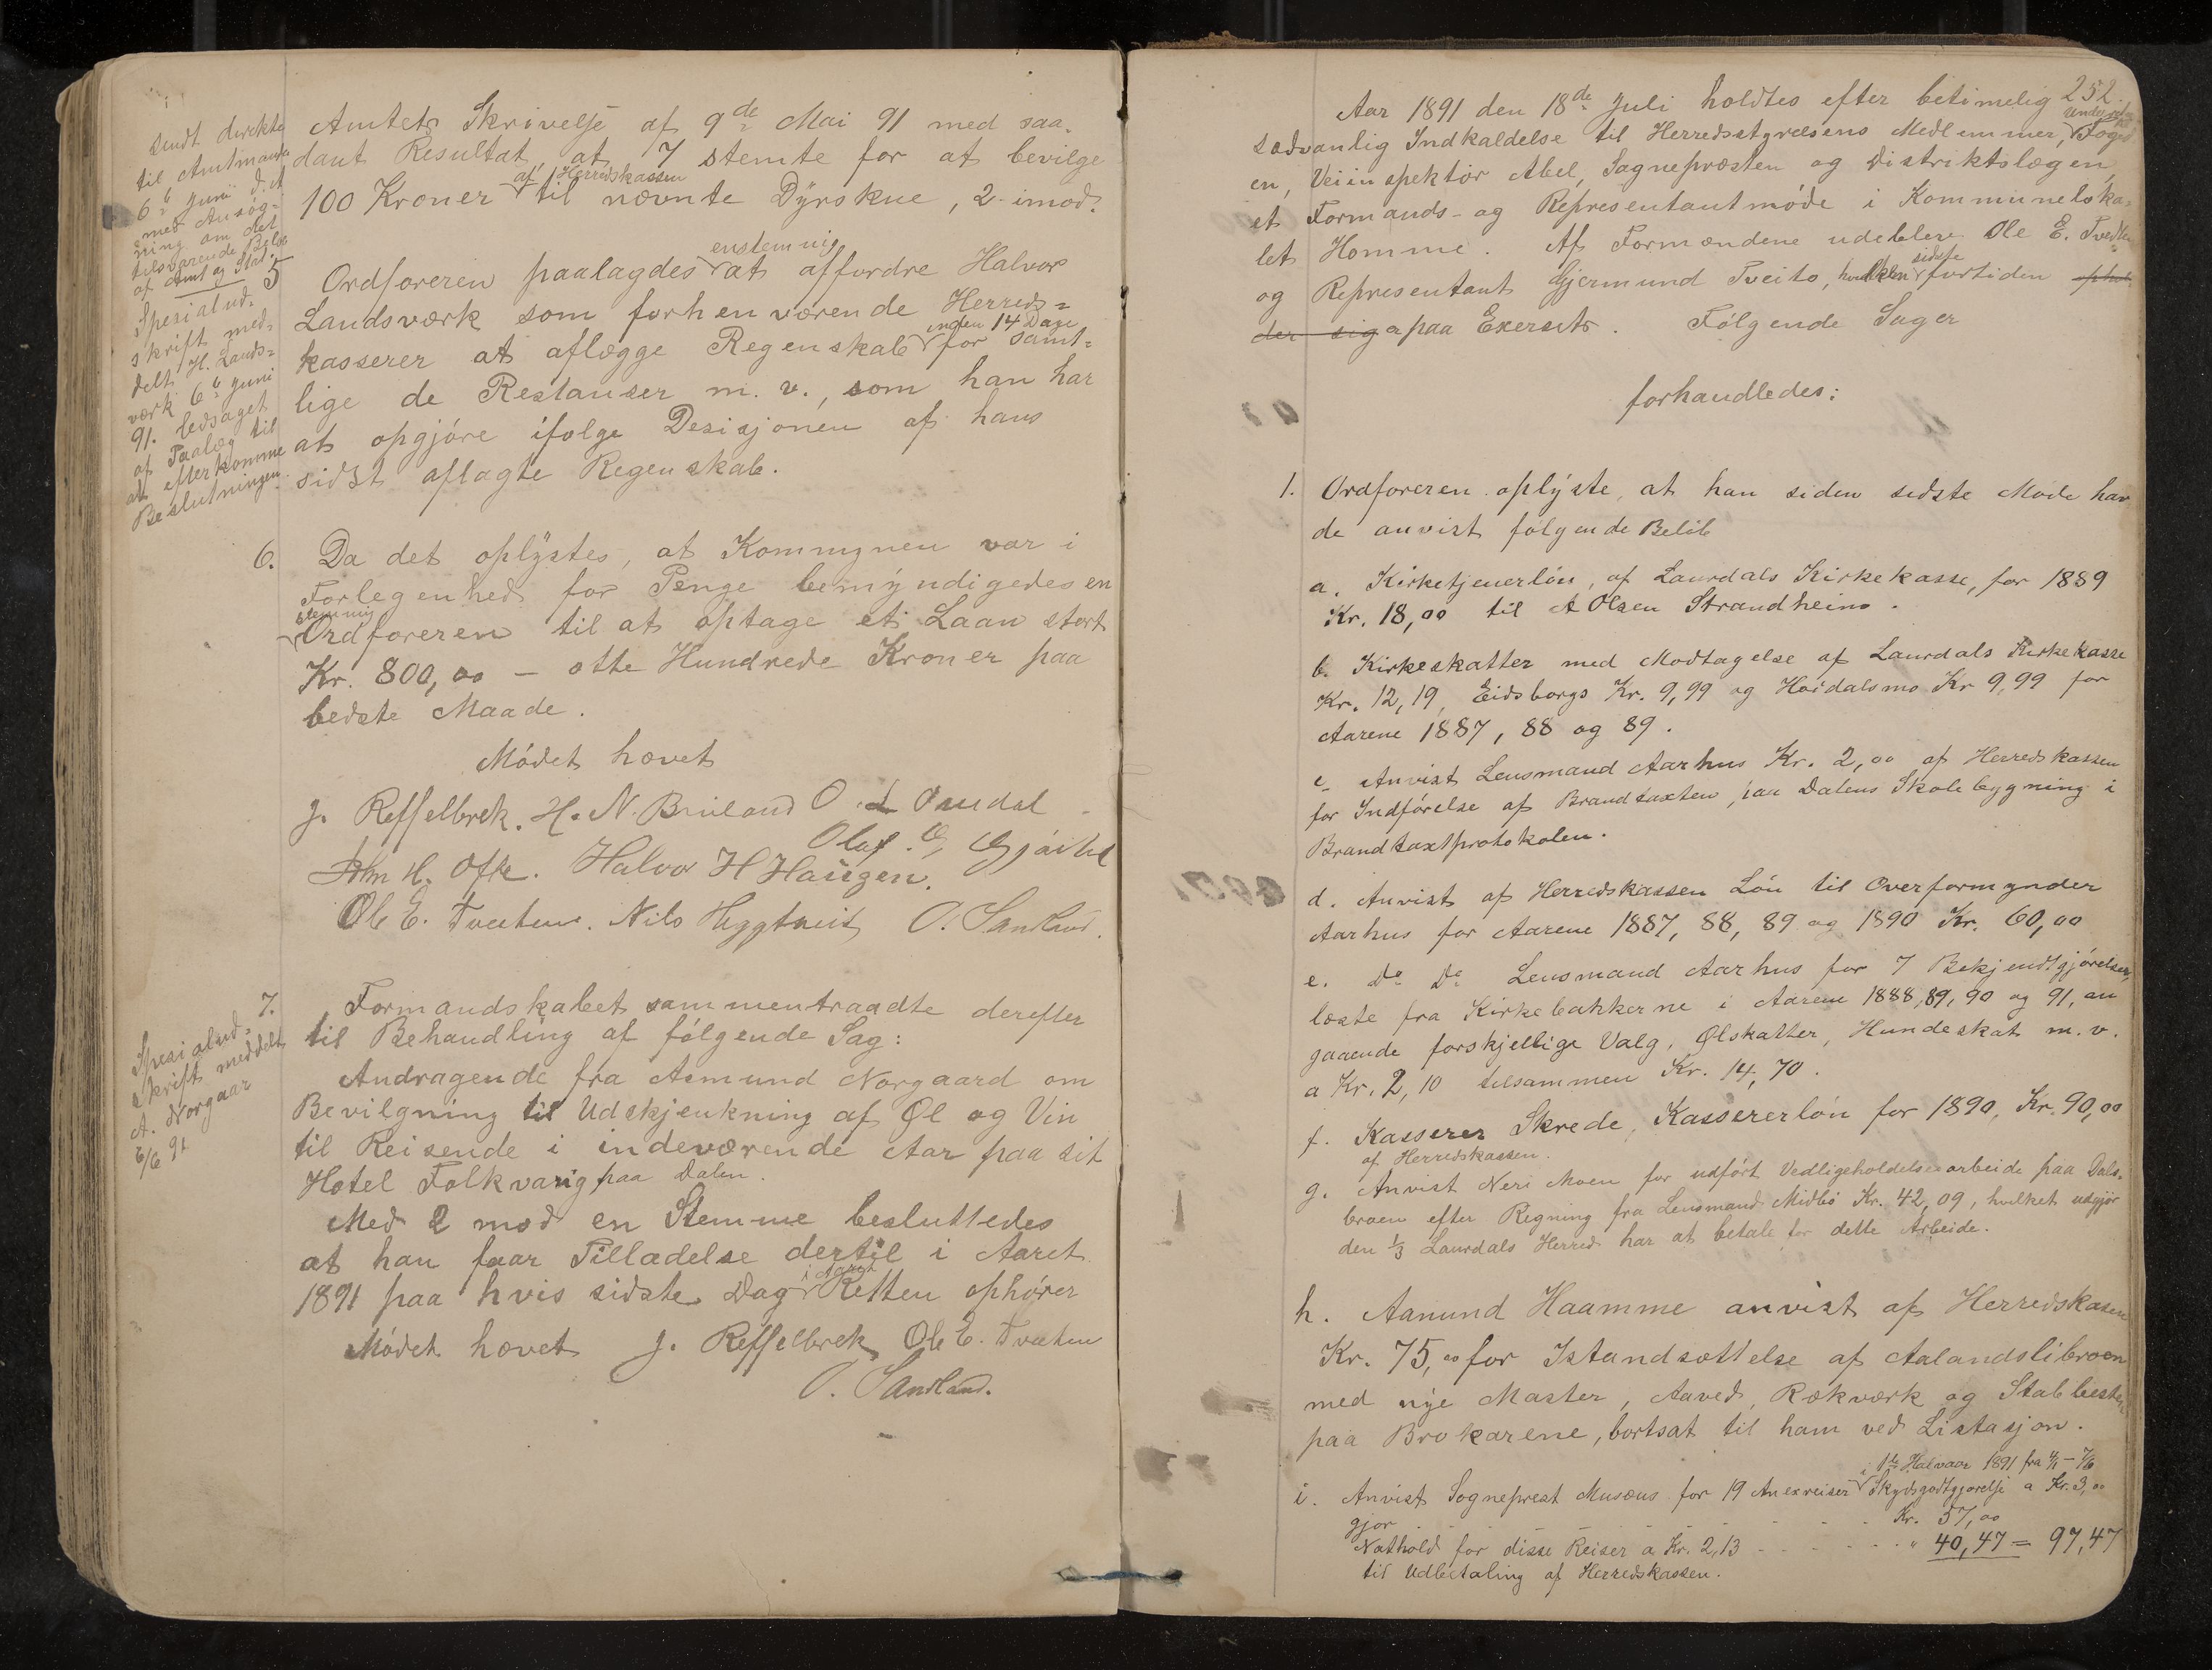 Amtets Skrivelse af 9de Mai 91 med saa-
dant Resultat, at 7 stemte for at bevilge
af Herredskassen
100 Kroner til nævnte Dyrskue, 2 imod.
sendt direkte
til Amtmanden
6te Juni d.A.
med Ansøg-
ning om det
tilsvarende Beløb
af Amt og Stat.
5
enstemmig
Ordføreren paalagdes at affordre Halvor
Landsværk som forhenværende Herreds-
inden 14 Dage
kasserer at aflægge Regenskab for samt-
lige de Restanser m. v., som han har
at opgjøre ifølge Desisjonen af hans
sidst aflagte Regenskab.
Spesialud-
skrift med-
delt H. Lands-
værk 6te Juni
91. ledsaget
af Paalæg til
at efterkomme
Beslutningen.
6. Da det oplystes, at Kommunen var i
Forlegenhed for Penge bemyndigedes en
stemmig
Ordføreren til at optage et Laan stort
Kr. 800,00 – otte Hundrede Kroner paa
bedste Maade.
Mødet hævet
J. Reffelbrek. H. N. Bruland O. L Omdal
Olaf. G. Gjøitil
John H. Ofte. Halvor H Haugen.
Ole E. Tveiten. Nils Heggtveit O. Sandland.
7. Formandskabet sammentraadte derefter
til Behandling af følgende Sag:
Andragende fra Asmund Norgaard om
Bevilgning til Udskjenkning af Øl og Vin
til Reisende i indeværende Aar paa sit
Hotel Folkvang paa Dalen.
Med 2 mod en Stemme besluttedes
at han faar Tilladelse dertil i Aaret
i Aaret
1891 paa hvis sidste Dag Retten ophører
Mødet hævet J. Reffelbrek Ole E. Tveiten
O. Sandland.
Spesialud-
skrift meddelt
A. Norgaar
6/6 91
252.
Aar 1891 den 18de Juli holdtes efter betimelig
sædvanlig Indkaldelse til Herredsstyrelsens Medlemmer, Foged
en, Veiinspektør Abel, Sognepræsten og Distriktslægen,
et Formands- og Representantmøde i Kommuneloka-
let Homme. Af Formændene udebleve Ole E. Tveiten
sidste
og Representant Gjermund Tveito, hvilken fortiden ophol
der sig paa Exersits. Følgende Sager
forhandledes:
1. Ordføreren oplyste, at han siden sidste Møde hav
de anvist følgende Beløb
a. Kirketjenerløn, af Laurdals Kirkekasse, for 1889
Kr. 18,00 til A Olsen Strandheim.
b. Kirkeskatter med Modtagelse af Laurdals Kirkekasse
Kr. 12,19, Eidsborgs Kr. 9,99 og Høidalsmo Kr 9,99 for
Aarene 1887, 88 og 89.
c. Anvist Lensmand Aarhus Kr. 2,00 af Herredskassen
for Indførelse af Brandtaxten paa Dalens Skolebygning i
Brandtaxtprotokolen.
d. Anvist af Herredskassen Løn til Overformynder
Aarhus for Aarene 1887, 88, 89 og 1890 Kr. 60,00
e. Do Do Lensmand Aarhus for 7 Bekjendtgjørelser,
læste fra Kirkebakkerne i Aarene 1888, 89, 90 og 91, an
gaaende forskjellige Valg, Ølskatter, Hundeskat m. v.
a Kr. 2,10 tilsammen Kr. 14,70.
f. Kasserer Skrede, Kassererløn for 1890, Kr. 90,00
af Herredskassen.
g. Anvist Neri Moen for udført Vedligeholdelsesarbeide paa Dals-
broen efter Regning fra Lensmand Midbø Kr. 42,09, hvilket udgjør
den 1/3 Laurdals Herred har at betale for dette Arbeide.
h. Aanund Haamme anvist af Herredskassen
Kr. 75,00 for Istandsættelse af Aalandslibroen
med nye Master, Aaved, Rækværk og Stabbesten
paa Brokarene, bortsat til ham ved Lisitasjon.
i 1ste Halvaar 1891 fra 4/1 – 7/6
i. Anvist Sogneprest Musæus for 19 Anexreiser Skydsgodtgjørelse a Kr. 3,00
gjør - - - - - - - Kr. 57,00
Nathold for disse Reiser a Kr. 2,13 - - - - - " 40,47 = 97,47
til Udbetaling af Herredskassen.